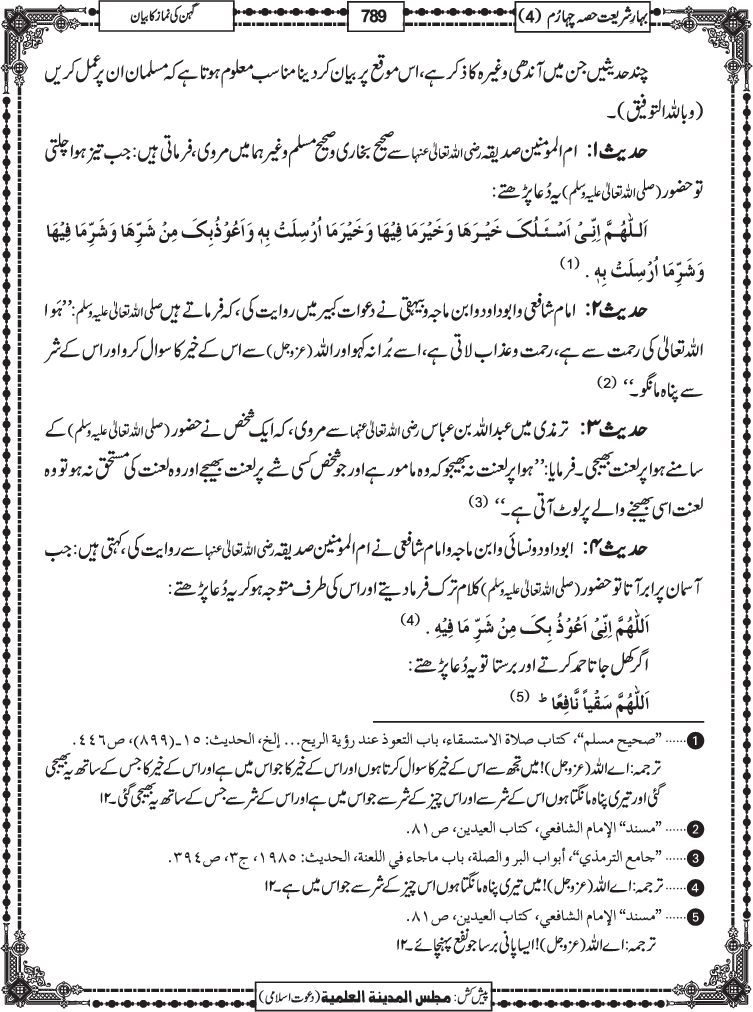 بہارِ شریعت حصہ چہارم (4)
789
گہن کی نماز کا بیان
چند حدیثیں جن میں آندھی وغیرہ کا ذکر ہے، اس موقع پر بیان کر دینا مناسب معلوم ہوتا ہے کہ مسلمان ان پر عمل کریں
(وباللہ التوفیق)۔
حدیث ۱: ام المومنین صدیقہ رضی اللہ تعالیٰ عنہا سے صحیح بخاری و صحیح مسلم وغیرہما میں مروی، فرماتی ہیں: جب تیز ہوا چلتی
تو حضور (صلی اللہ تعالیٰ علیہ وسلم) یہ دُعا پڑھتے:
اَللّٰھُمَّ اِنِّیْ اَسْئَلُکَ خَیْرَھَا وَخَیْرَمَا فِیْھَا وَخَیْرَمَا اُرْسِلَتْ بِہٖ وَاَعُوْذُبِکَ مِنْ شَرِّھَا وَشَرِّمَا فِیْھَا
وَشَرِّمَا اُرْسِلَتْ بِہٖ . (1)
حدیث ۲: امام شافعی و ابو داود و ابن ماجہ و بیہقی نے دعوات کبیر میں روایت کی، کہ فرماتے ہیں صلی اللہ تعالیٰ علیہ وسلم: ’’ہَوا
اللہ تعالیٰ کی رحمت سے ہے، رحمت و عذاب لاتی ہے، اسے بُرا نہ کہو اور اللہ (عزوجل) سے اس کے خیر کا سوال کرو اور اس کے شر
سے پناہ مانگو۔‘‘ (2)
حدیث ۳: ترمذی میں عبداللہ بن عباس رضی اللہ تعالیٰ عنہما سے مروی، کہ ایک شخص نے حضور (صلی اللہ تعالیٰ علیہ وسلم) کے
سامنے ہوا پر لعنت بھیجی۔ فرمایا: ’’ہوا پر لعنت نہ بھیجو کہ وہ مامور ہے اور جو شخص کسی شے پر لعنت بھیجے اور وہ لعنت کی مستحق نہ ہو تو وہ
لعنت اسی بھیجنے والے پر لوٹ آتی ہے۔‘‘ (3)
حدیث ۴: ابو داود و نسائی و ابن ماجہ و امام شافعی نے ام المومنین صدیقہ رضی اللہ تعالیٰ عنہا سے روایت کی، کہتی ہیں: جب
آسمان پر ابر آتا تو حضور (صلی اللہ تعالیٰ علیہ وسلم) کلام ترک فرما دیتے اور اس کی طرف متوجہ ہو کر یہ دُعا پڑھتے:
اَللّٰھُمَّ اِنِّیْ اَعُوْذُ بِکَ مِنْ شَرِّ مَا فِیْہِ . (4)
اگر کھل جاتا حمد کرتے اور برستا تو یہ دُعا پڑھتے:
اَللّٰھُمَّ سَقْیاً نَّافِعًا ؕ (5)
1 ...... ”صحیح مسلم“، کتاب صلاۃ الاستسقاء، باب التعوذ عند رؤیۃ الریح... إلخ، الحدیث: ۱۵ـ(۸۹۹)، ص۴۴۶.
ترجمہ: اے اللہ (عزوجل)! میں تجھ سے اس کے خیر کا سوال کرتا ہوں اور اس کے خیر کا جو اس میں ہے اور اس کے خیر کا جس کے ساتھ یہ بھیجی
گئی اور تیری پناہ مانگتا ہوں اس کے شر سے اور اس چیز کے شر سے جو اس میں ہے اور اس کے شر سے جس کے ساتھ یہ بھیجی گئی۔۱۲
2 ...... ”مسند“ الإمام الشافعي، کتاب العیدین، ص۸۱.
3 ...... ”جامع الترمذي“، أبواب البر والصلۃ، باب ماجاء في اللعنۃ، الحدیث: ۱۹۸۵، ج۳، ص۳۹۴.
4 ...... ترجمہ: اے اللہ (عزوجل)! میں تیری پناہ مانگتا ہوں اس چیز کے شر سے جو اس میں ہے۔۱۲
5 ...... ”مسند“ الإمام الشافعي، کتاب العیدین، ص۸۱.
ترجمہ: اے اللہ (عزوجل)! ایسا پانی برسا جو نفع پہنچائے۔۱۲
پیش کش: مجلس المدینۃ العلمیۃ (دعوت اسلامی)